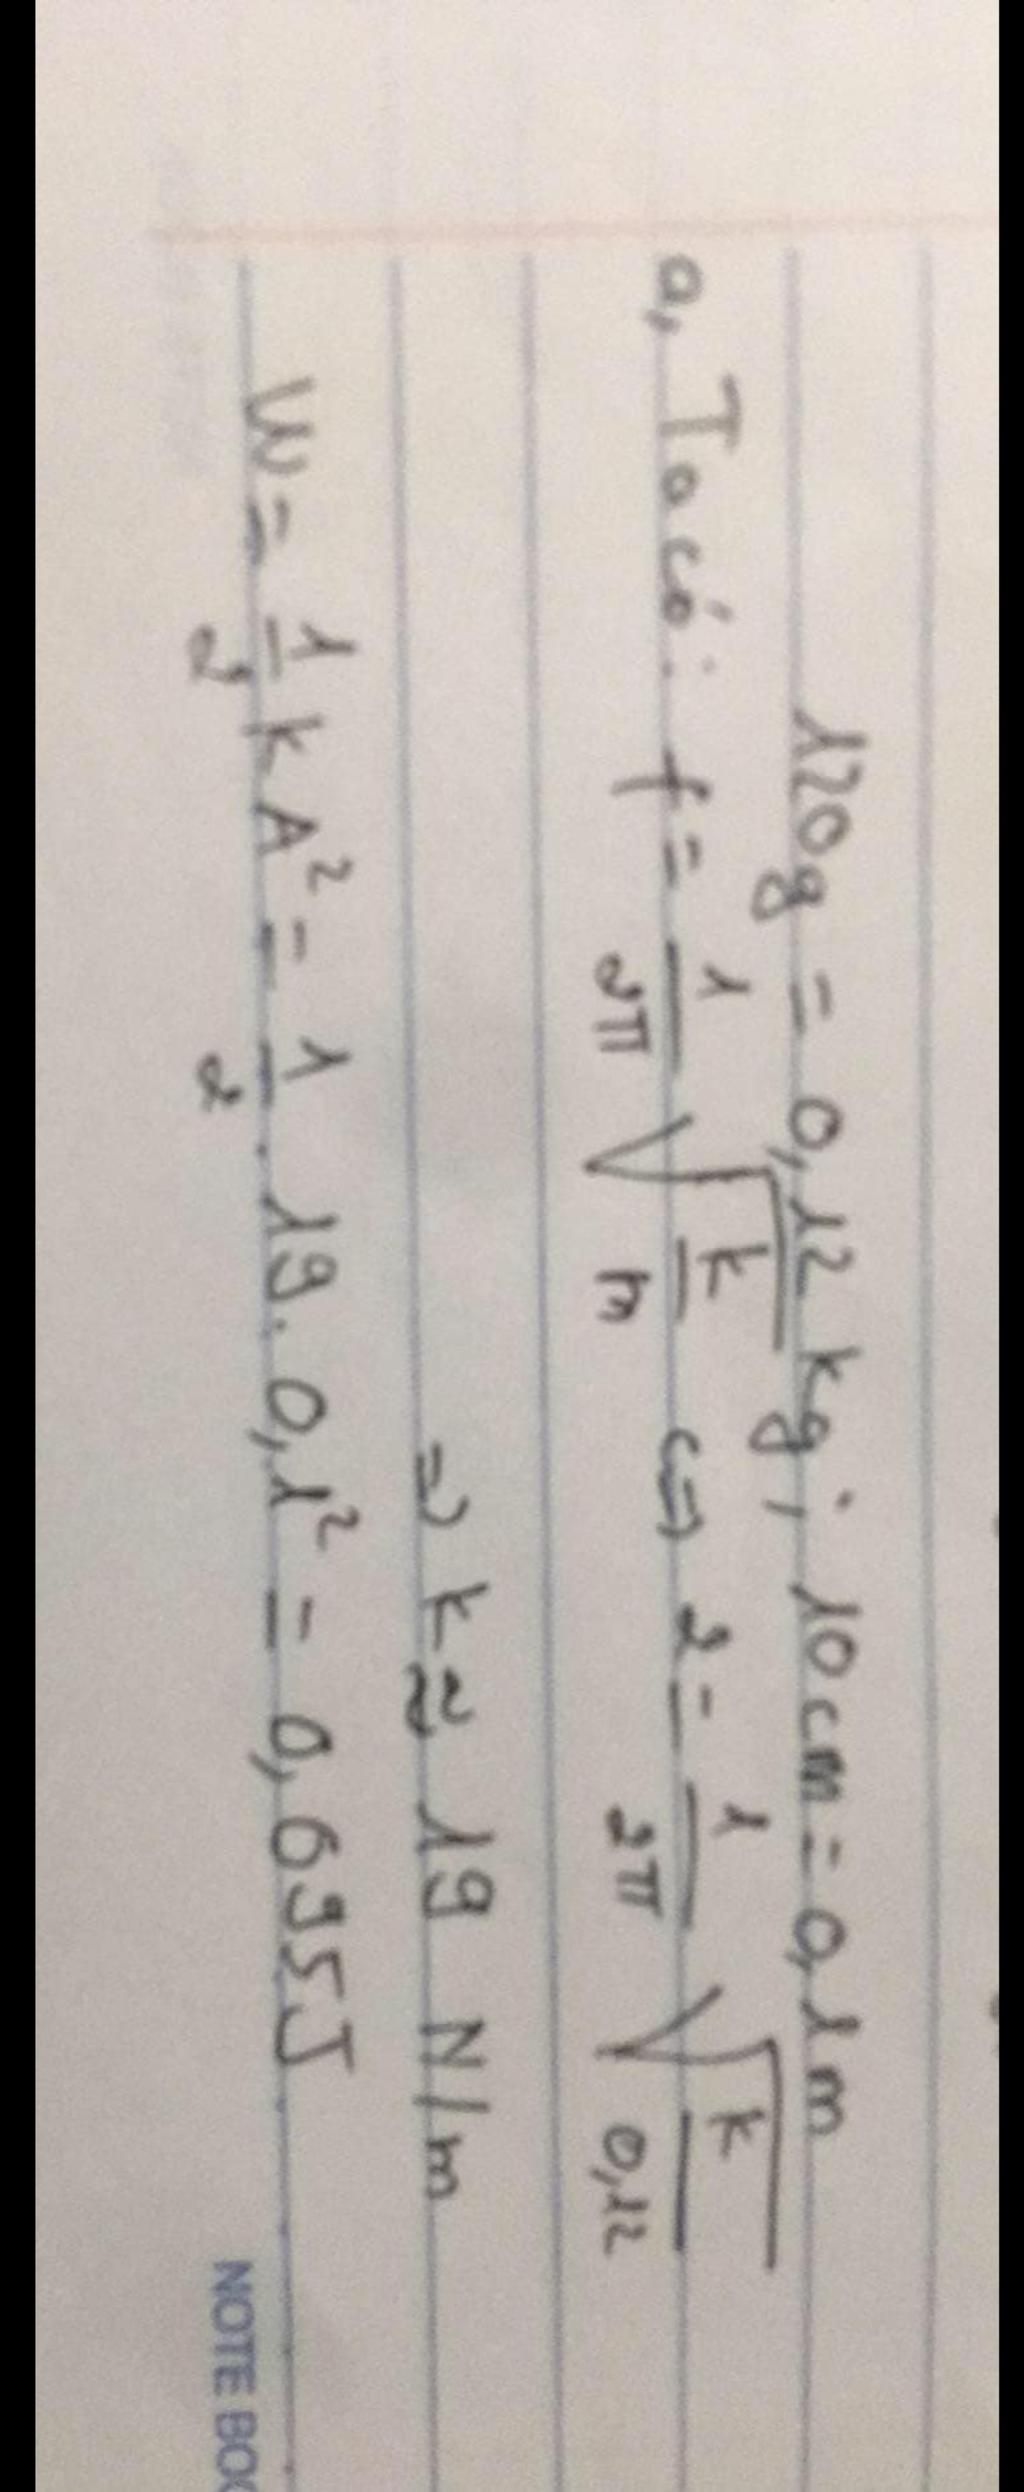 120g = 0,12 kg; 10cm = 0,1m
a, Ta có: f = 1/2π √(k/m) <=> 2 = 1/2π √(k/0,12)
=> k ≈ 19 N/m
W = 1/2 kA² = 1/2 . 19 . 0,1² = 0,695J
NOTE BO